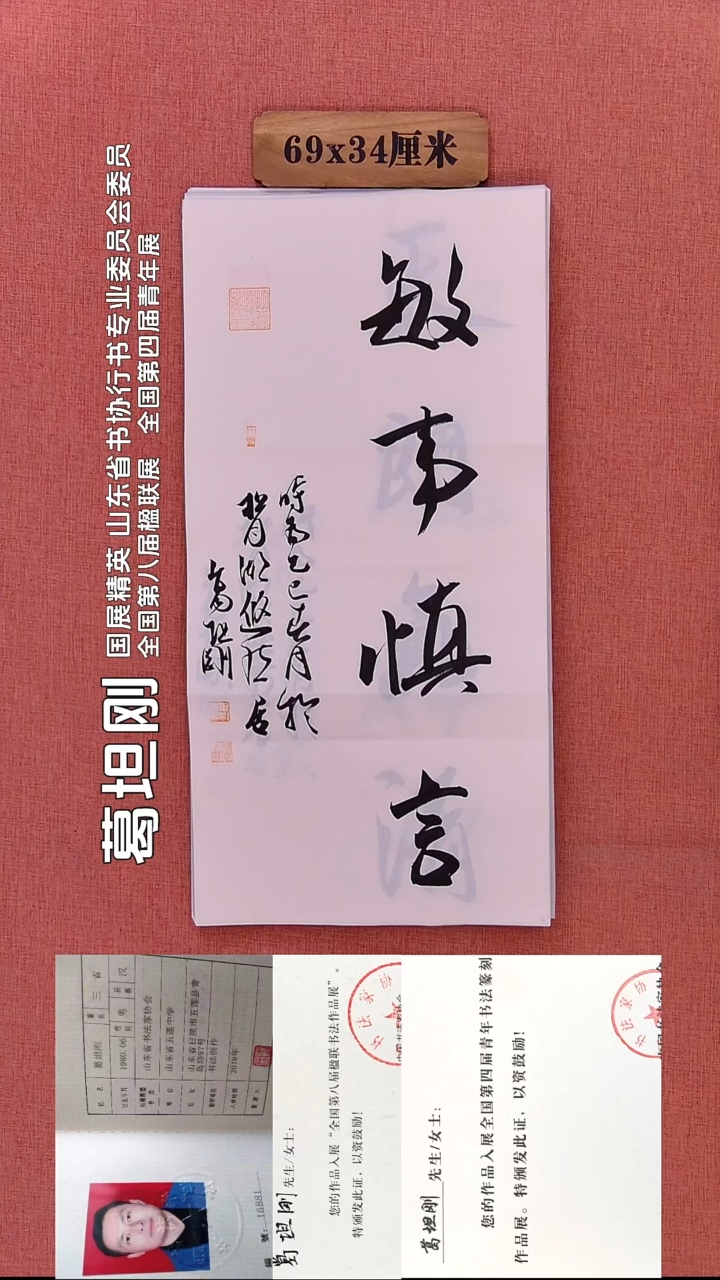 69x34厘米
敏事慎言
时为乙巳春月于
胥湖悠然居
葛坦刚
葛坦刚
国展精英 山东省书协行书专业委员会委员
全国第八届楹联展 全国第四届青年展
姓名 葛坦刚
1980.06 性别 男 民族 汉
山东省书法家协会
山东省五莲中学
山东省日照市五莲县青
书法创作
2018年
號:16881
葛坦刚 先生/女士:
您的作品入展“全国第八届楹联书法作品展”。
特颁发此证,以资鼓励!
葛坦刚 先生/女士:
您的作品入展全国第四届青年书法篆刻
作品展。特颁发此证,以资鼓励!